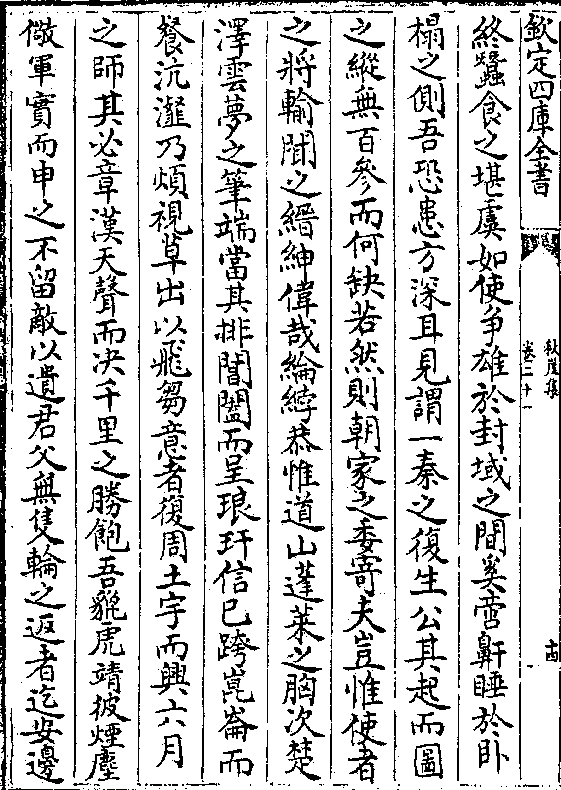 欽定四庫全書
秋崖集
卷二十一
十四
終蠶食之堪虞如使争雄於封域之間奚啻鼾睡於卧
榻之側吾恐患方深耳見謂一秦之復生公其起而圖
之縱無百參而何缺若然則朝家之委寄夫豈惟使者
之將輸聞之縉紳偉哉綸綍恭惟道山蓬萊之胸次楚
澤雲夢之筆端當其排閶闔而呈琅玕信已跨崑崙而
餐沆瀣乃煩視草出以飛芻意者復周土宇而興六月
之師其必章漢天聲而决千里之勝飽吾貔虎靖彼煙塵
儆軍實而申之不留敵以遺君父無隻輪之返者迄安邊